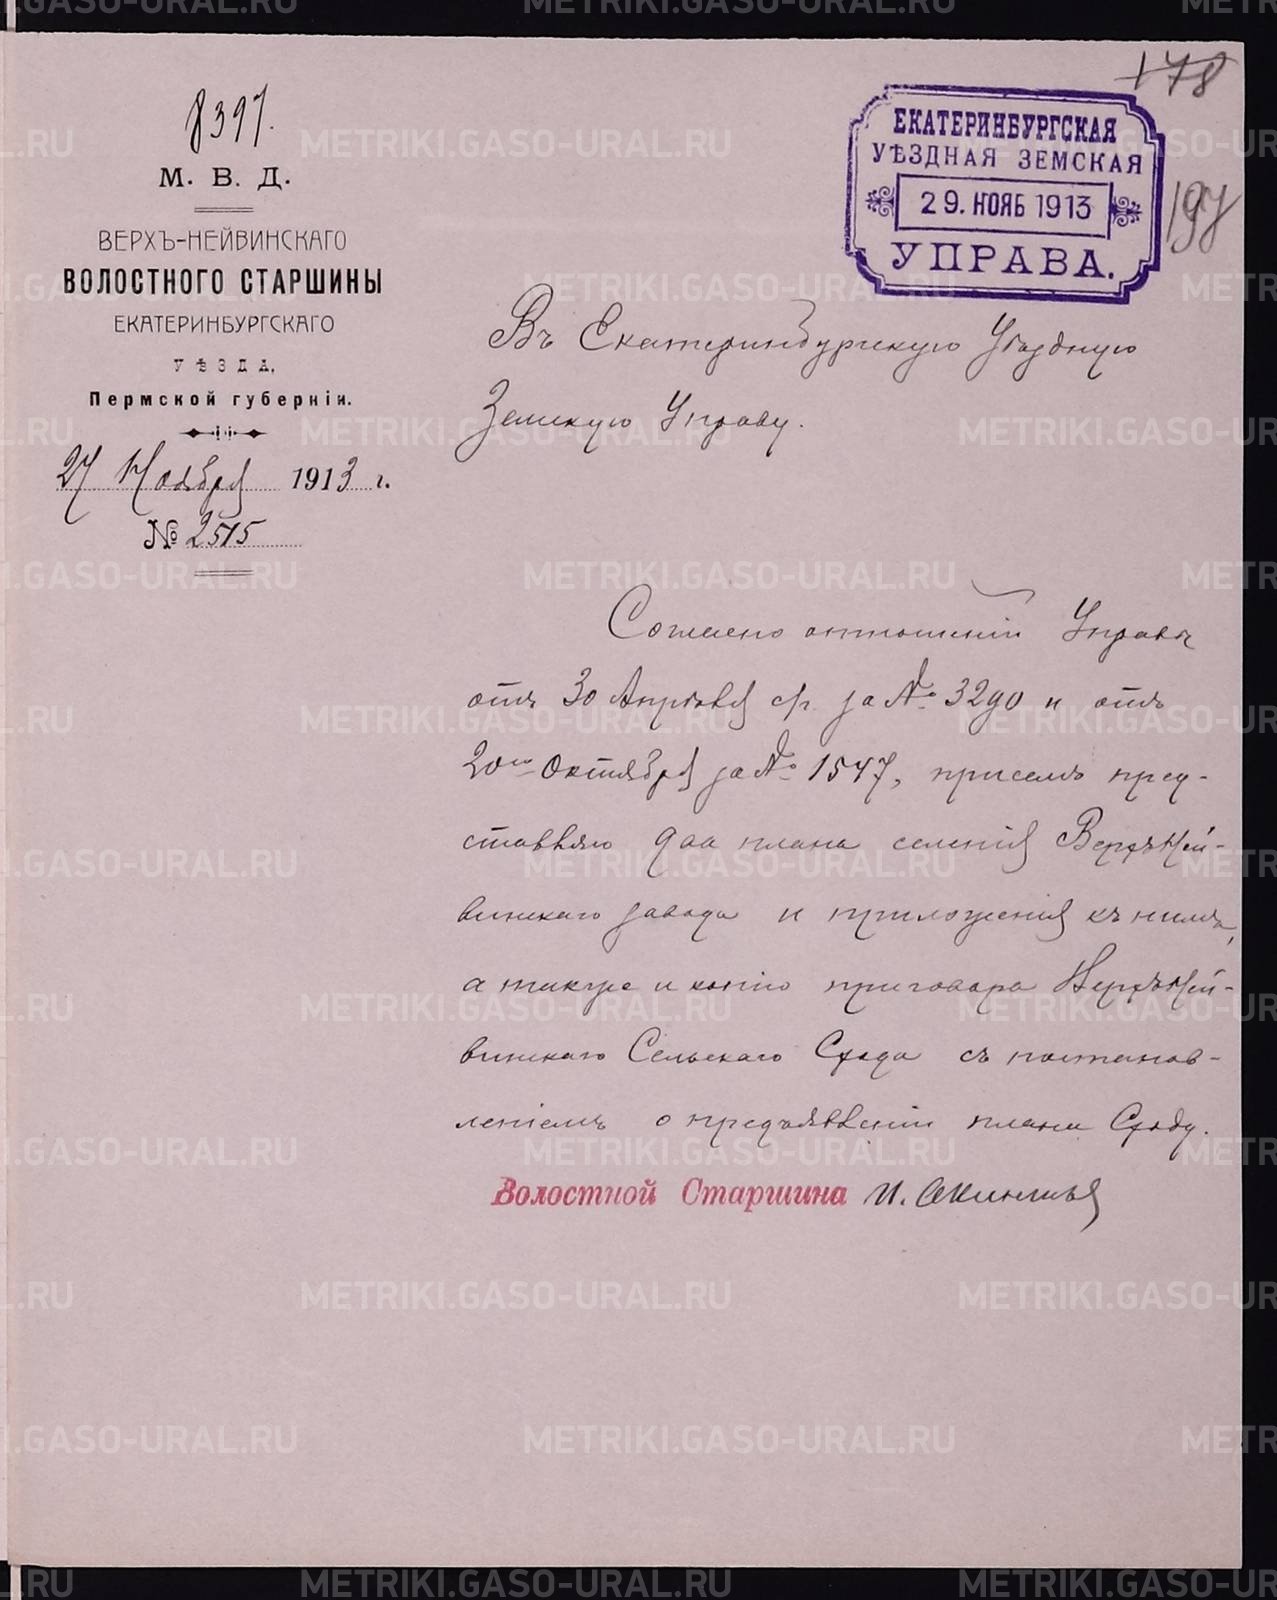 178
8397.
М. В. Д.
ВЕРХЪ-НЕЙВИНСКАГО
ВОЛОСТНОГО СТАРШИНЫ
ЕКАТЕРИНБУРГСКАГО
УѢЗДА,
Пермской губерніи.
27 Ноября 1913 г.
№ 2515
ЕКАТЕРИНБУРГСКАЯ
УѢЗДНАЯ ЗЕМСКАЯ
29. НОЯБ 1913
УПРАВА.
197
Въ Екатеринбургскую Уѣздную
Земскую Управу.
Согласно отношеній Управы
отъ 30 Апрѣля с/г. за № 3290 и отъ
20го Октября за № 1547, присемъ пред-
ставляю два плана селенія Верхъ-Ней-
винскаго завода и приложенія къ нимъ,
а также и копію приговора Верхъ-Ней-
винскаго Сельскаго Схода съ постанов-
леніемъ о предъявленіи плана Сходу.
Волостной Старшина И.
METRIKI.GASO-URAL.RU